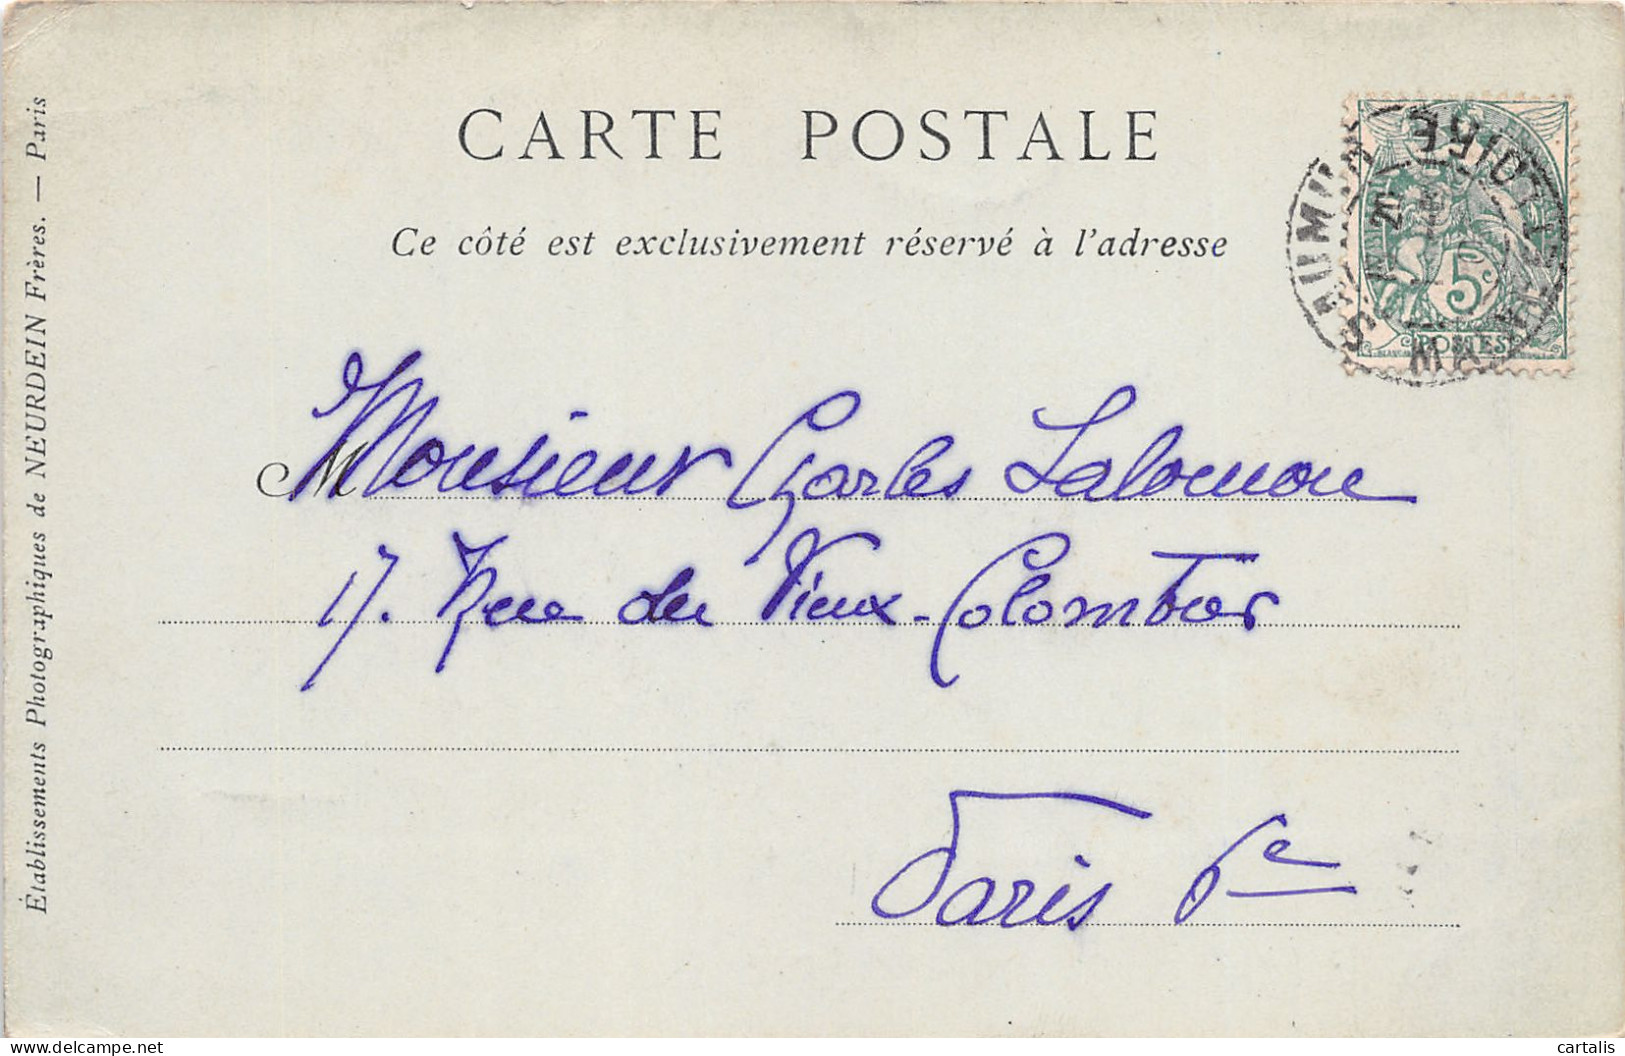 CARTE POSTALE
Ce côté est exclusivement réservé à l'adresse
Établissements Photographiques de NEURDEIN Frères. — Paris
SAUMUR
MAINE ET LOIRE
20
5c
POSTES
M
Monsieur Charles Salomon
17. Rue du Vieux-Colombier
Paris 6e
delcampe.net
cartalis